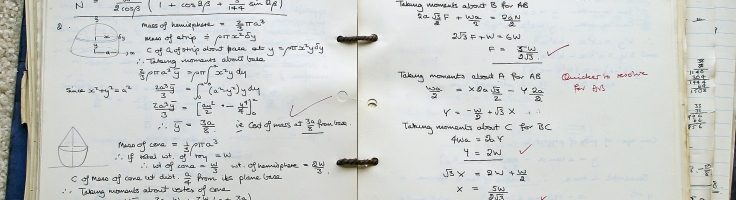 N = / 2cosβ (1 + cos2β + 3/144 sin2β)
2.
Mass of hemisphere = 2/3 πρa³
Mass of strip = ρπx²δy
C of G of strip about base at y = ρπx²yδy
∴ Taking moments about base
2/3 ρπa³ȳ = ρπ∫x²y dy
Since x²+y²=a²
2a³ȳ/3 = ∫(a²-y²)y dy
2a³ȳ/3 = [a²y²/2 - y⁴/4]
∴ ȳ = 3a/8 ie C of mass at 3a/8 from base
Mass of cone = 1/3 ρπa³
∴ If total wt. of toy = W
∴ wt of cone = W/3 wt. of hemisphere = 2W/3
C of Mass of cone at dist. a/4 from its plane base
∴ Taking moments about vertex of cone
Taking moments about B for AB
F + Wa/2 = 2aN
2√3 F + W = 6W
F = 5W/2√3
Taking moments about A for AB
Quicker to resolve
for AB
Wa/2 = X2a√3/2 - Y2a/2
Y = -W/2 + √3 X
Taking moments about C for BC
4Wa = 2aY
Y = 2W
√3 X = 2W + W/2
X = 5W/2√3